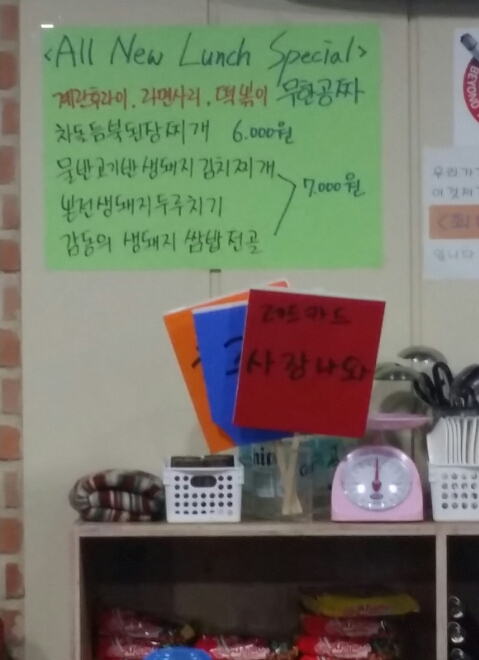 <All New Lunch Special>
계란후라이, 라면사리, 떡볶이 무한공짜
차돌듬북된장찌개 6.000원
물반고기반생돼지김치찌개
7.000원
본전생돼지두루치기
감동의 생돼지쌈밥전골
BEYOND
우리가
레드카드
사랑나와